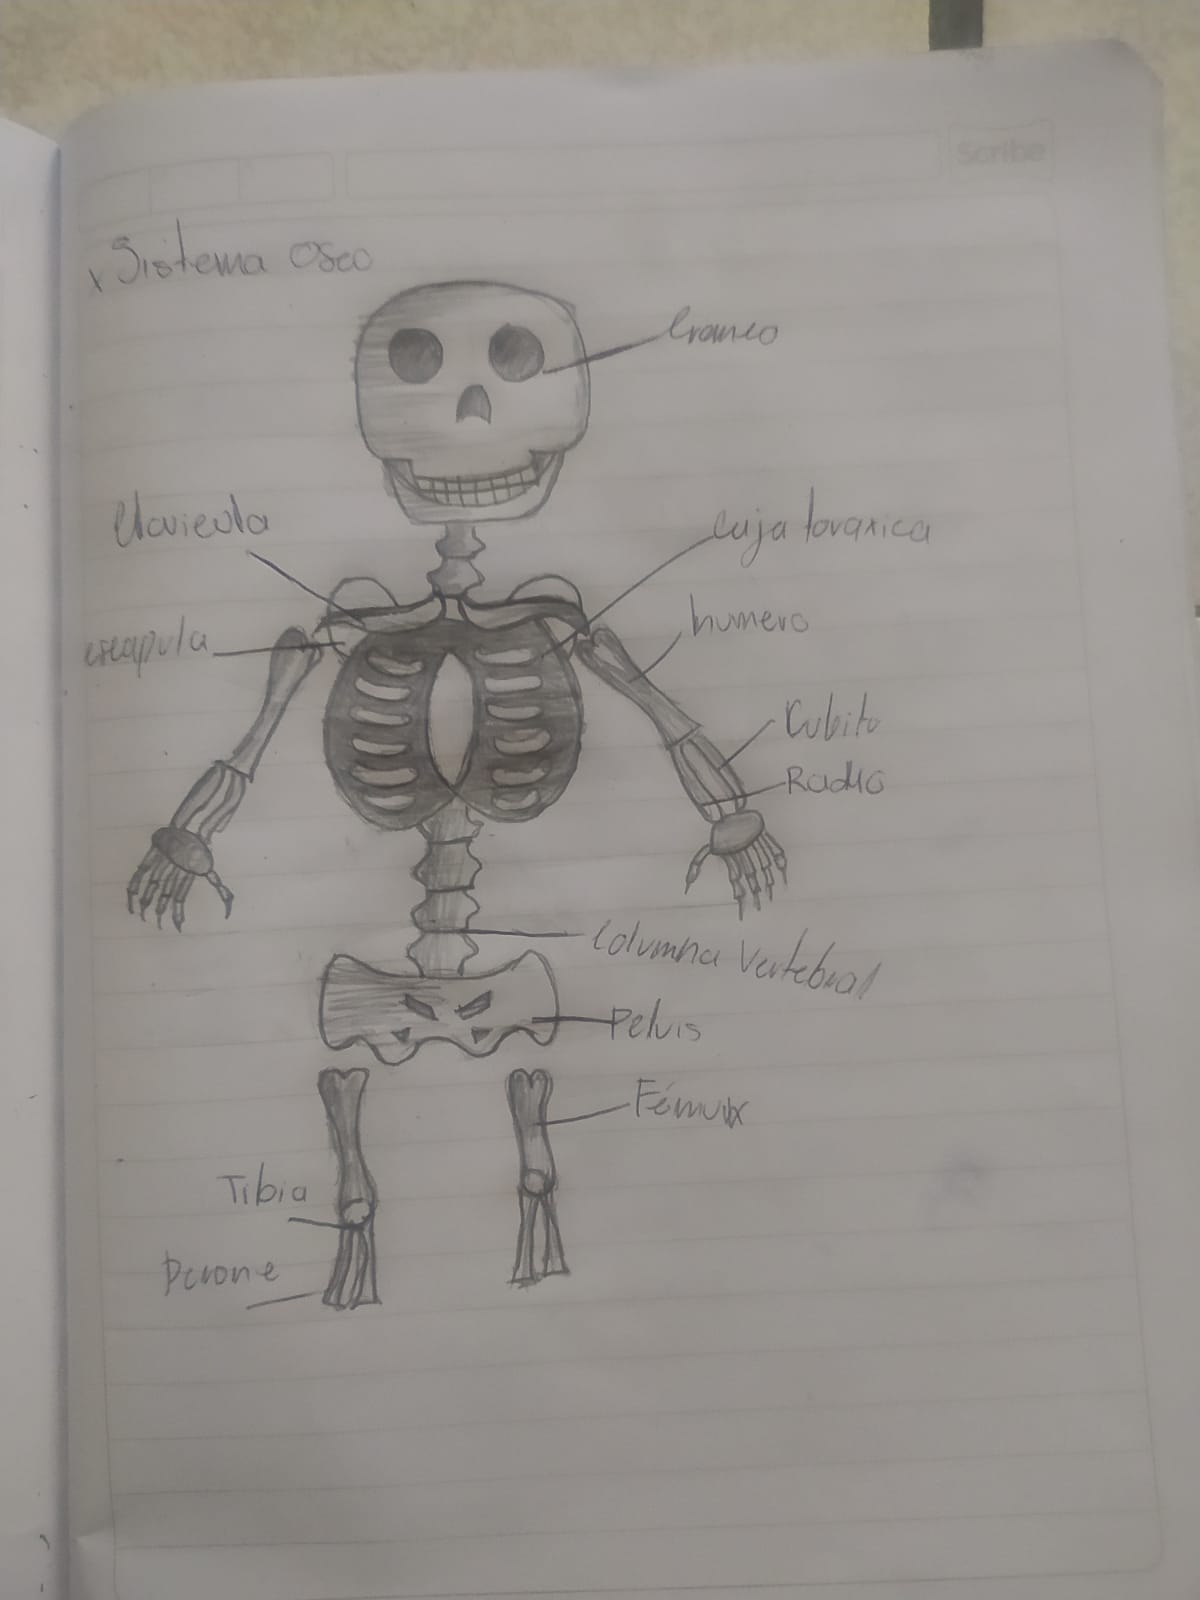 Scribe
Sistema Oseo
Craneo
Clavicula
Caja toraxica
escapula
humero
Cubito
Radio
Columna Vertebral
Pelvis
Fémur
Tibia
Perone